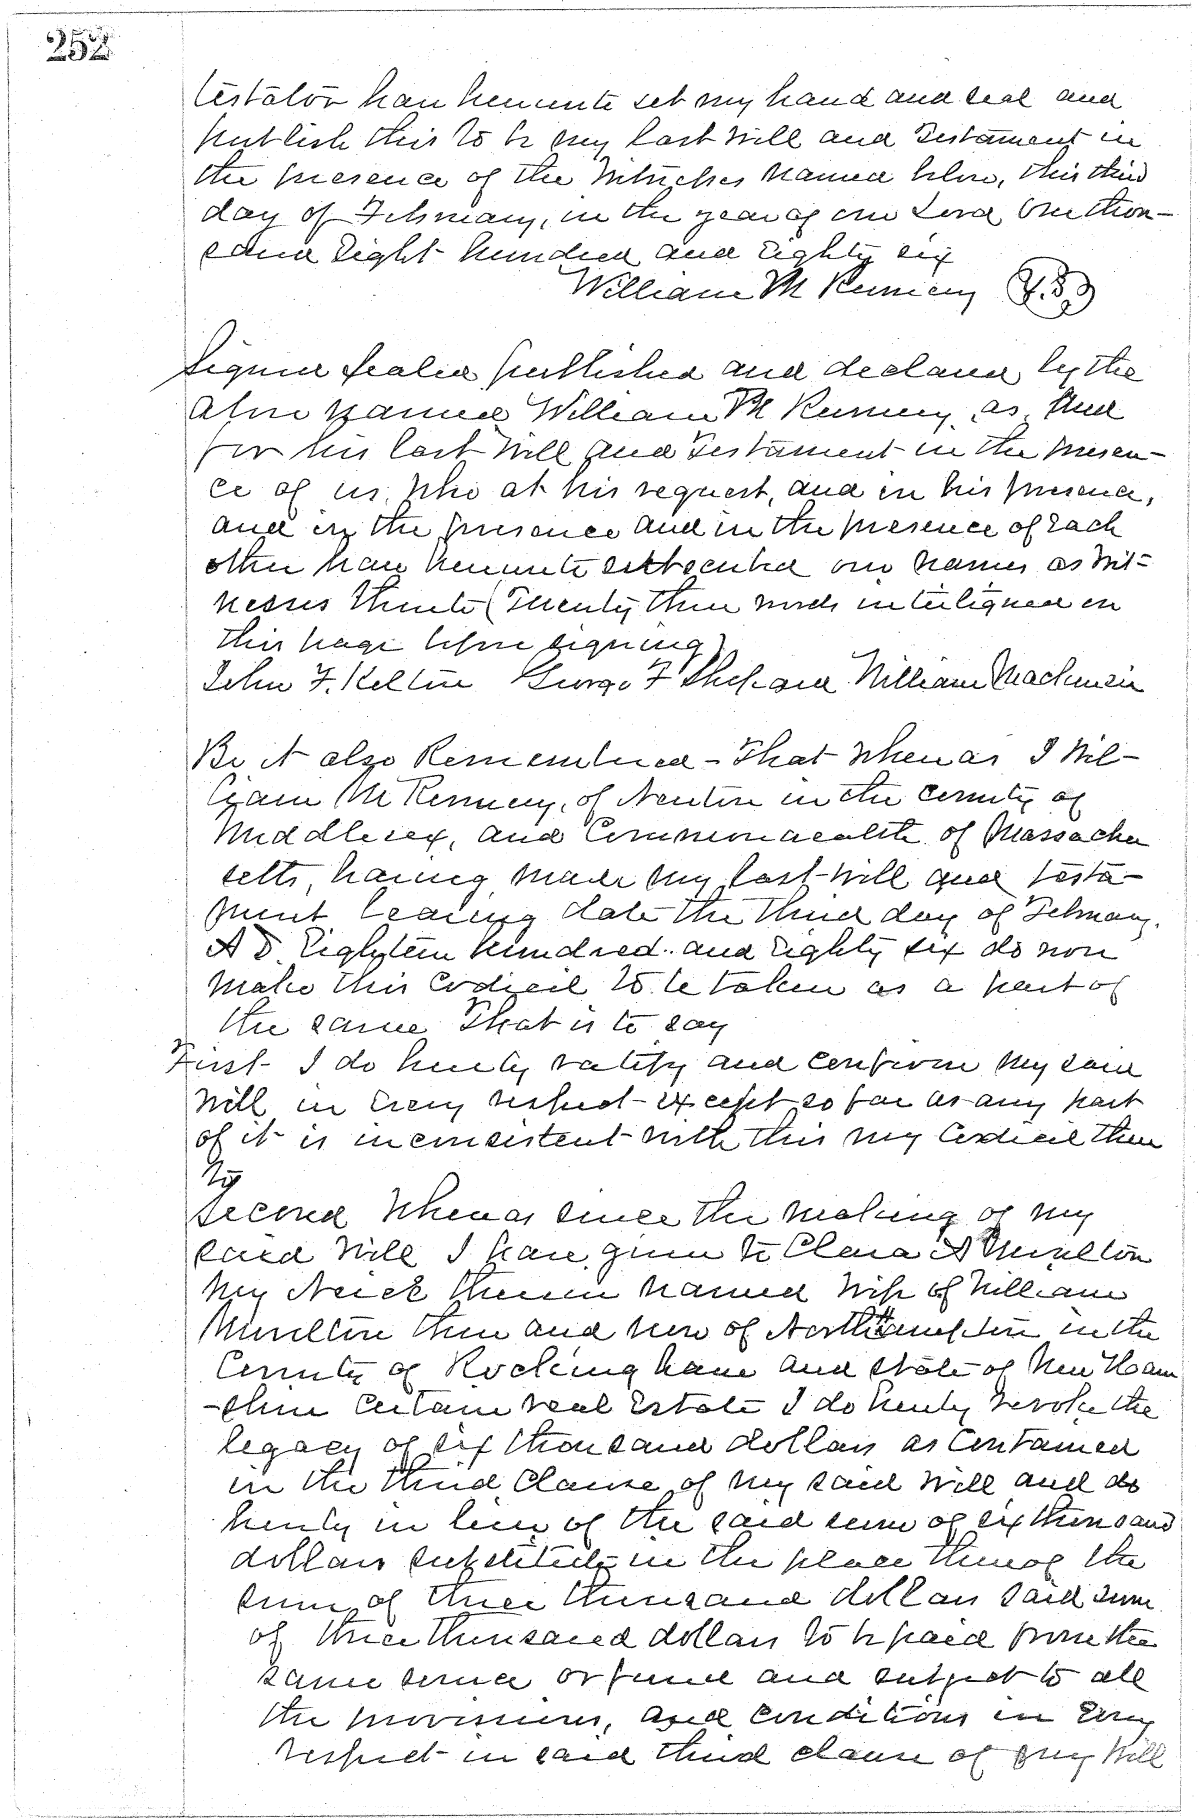 252
testator have hereunto set my hand and seal and
publish this to be my last will and Testament in
the presence of the Witnesses named below, this third
day of February, in the year of our Lord One thou-
sand Eight hundred and Eighty six
William M Rumery
Signed Sealed published and declared by the
above named William M Rumery, as, and
for his last Will and Testament in the presen-
ce of us, who at his request, and in his presence,
and in the presence and in the presence of Each
other have hereunto subscribed our names as Wit-
nesses thereto (Twenty three words interlined on
this page before signing)
John F. Kelton George F Shepard William Mackenzie
Be it also Remembered - That Whereas I Wil-
liam M Rumery, of Newton in the County of
Middlesex, and Commonwealth of Massachu
setts, having made my last Will and testa-
ment bearing date the third day of February,
A D. Eighteen hundred and Eighty six do now
make this Codicil to be taken as a part of
the same That is to say
First I do hereby ratify and confirm my said
Will in Every respect except so far as any part
of it is inconsistent with this my Codicil there
to
Second Whereas since the making of my
said Will I have given to Clara A Moulton
my Neice therein named Wife of William
Moulton then and now of North Hampton in the
County of Rockingham and state of New Ham
-shire Certain real Estate I do hereby revoke the
legacy of six thousand dollars as Contained
in the third Clause of my said Will and do
hereby in lieu of the said sum of six thousand
dollars substitute in the place thereof the
sum of three thousand dollars said sum
of three thousand dollars to be paid from the
same source or fund and subject to all
the provisions, and conditions in Every
respect in said third clause of my Will